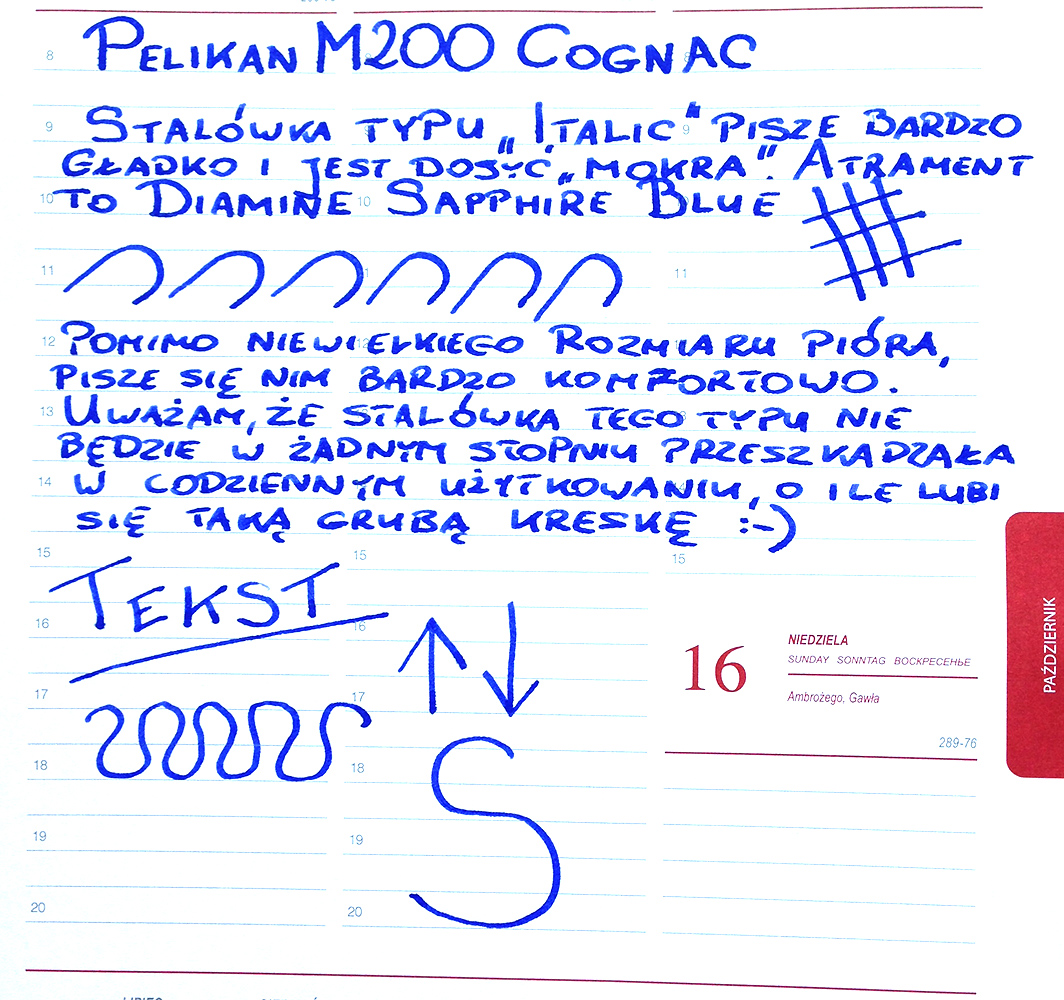 8
PELIKAN M200 COGNAC
9 STALÓWKA TYPU „ITALIC" 9 PISZE BARDZO
GŁADKO I JEST DOSYĆ „MOKRA". ATRAMENT
10 TO DIAMINE 10 SAPPHIRE BLUE
11 11 11
12 POMIMO NIEWIELKIEGO ROZMIARU PIÓRA,
PISZE SIĘ NIM BARDZO KOMFORTOWO.
13 UWAŻAM, ŻE STALÓWKA TEGO TYPU NIE
BĘDZIE W ŻADNYM STOPNIU PRZESZKADZAŁA
14 W CODZIENNYM UŻYTKOWANIU, O ILE LUBI
SIĘ TAKĄ GRUBĄ KRESKĘ :-)
15 15 15
TEKST
16 16
17 17
18 18
19 19
20 20
S
16
NIEDZIELA
SUNDAY SONNTAG ВОСКРЕСЕНЬЕ
Ambrożego, Gawła
289-76
PAŹDZIERNIK